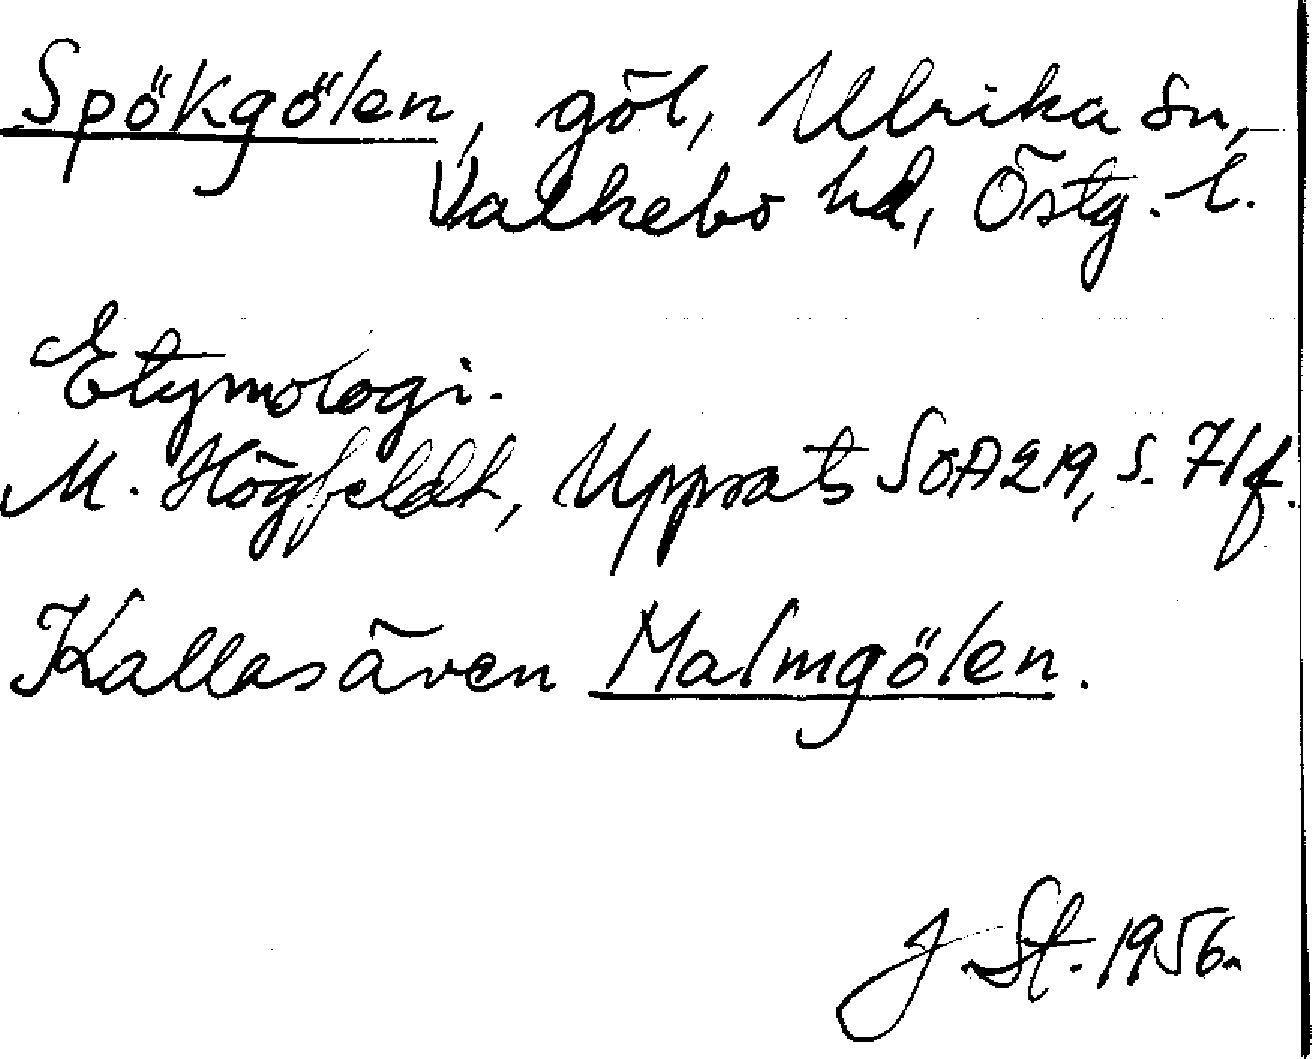 Spökgölen, göl, Ulrika sn,
Valkebo hd, Östg. l.
Etymologi.
M. Högfeldt, Uppsats SOA 219, s. 71 f.
Kallas även Malmgölen.
J. St. 1956.